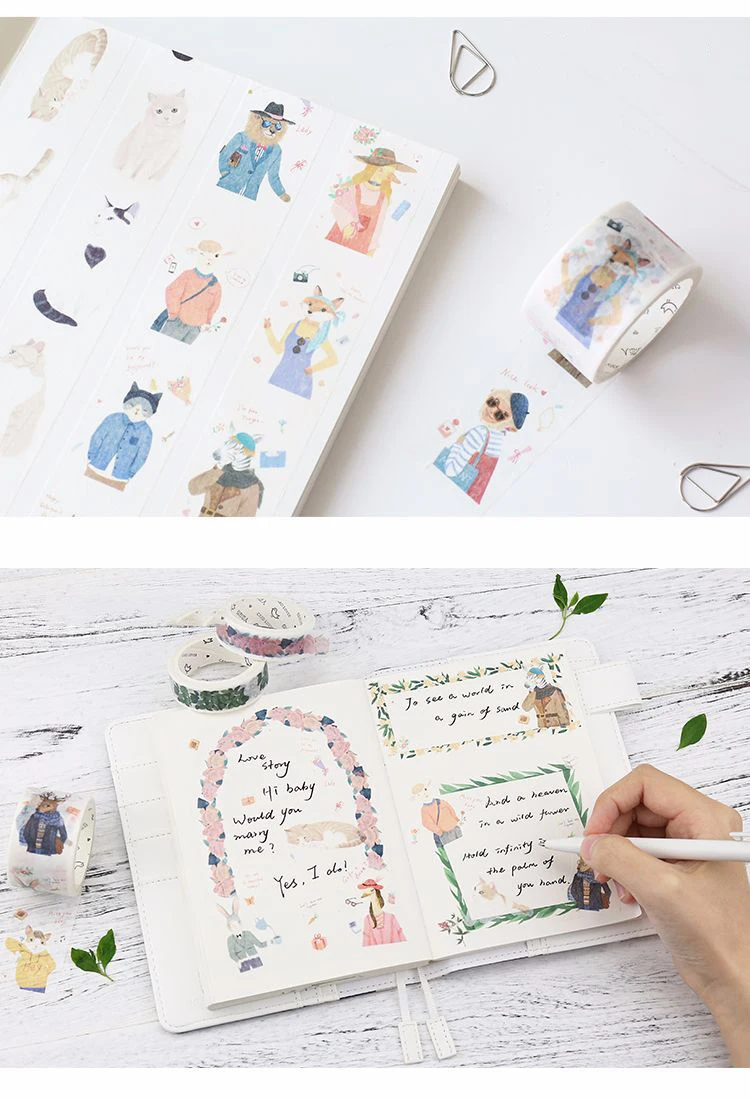 Lady
Nice look
Love
story
Hi baby
Would you
marry
me?
Yes, I do!
To see a world in
a gain of sand
And a heaven
in a wild flower
Hold infinity is
the palm of
you hand
Hey